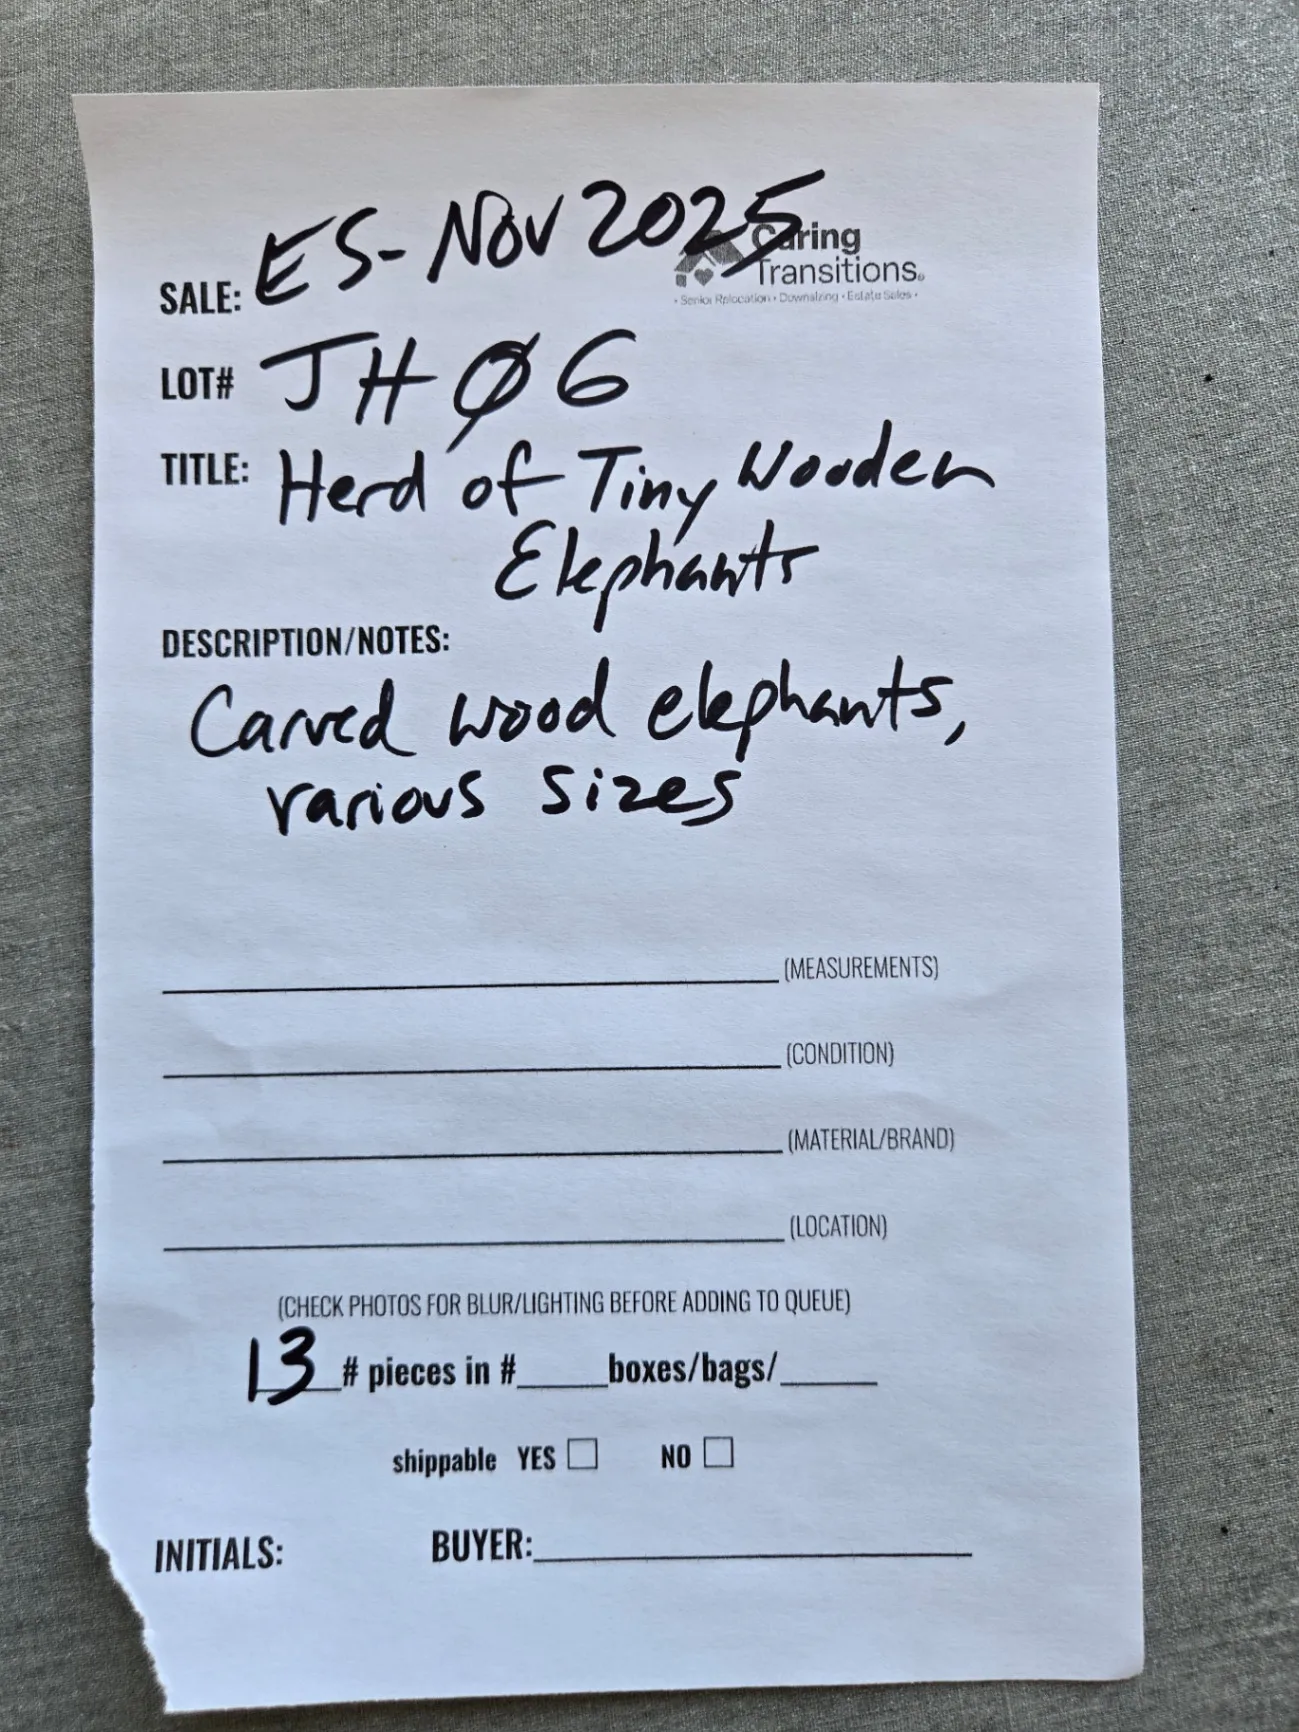 SALE: ES-Nov 2025
Caring
Transitions
• Senior Relocation • Downsizing • Estate Sales •
LOT# JHØ6
TITLE: Herd of Tiny Wooden
Elephants
DESCRIPTION/NOTES:
Carved wood elephants,
various sizes
(MEASUREMENTS)
(CONDITION)
(MATERIAL/BRAND)
(LOCATION)
(CHECK PHOTOS FOR BLUR/LIGHTING BEFORE ADDING TO QUEUE)
13 # pieces in #_____boxes/bags/_____
shippable YES ☐ NO ☐
INITIALS: BUYER:_____